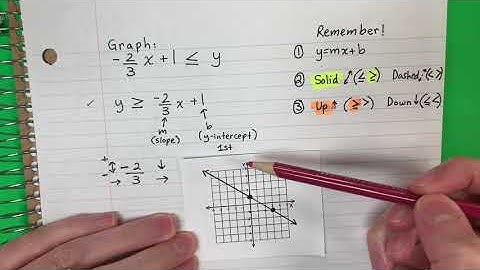 Graph:
-2/3 x + 1 ≤ y
✓ y ≥ -2/3 x + 1
m
(slope)
b
(y-intercept)
1st
+ ↑ -2 ↓
- ↓ 3 →
→
Remember!
① y=mx+b
② Solid (≤ ≥) Dashed (< >)
③ Up ↑ (≥ >) Down ↓ (≤ <)